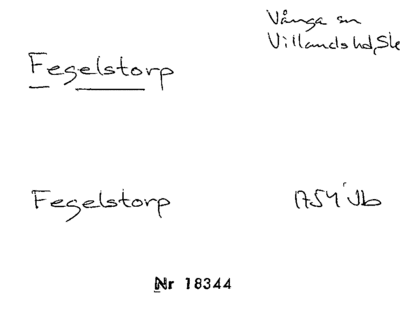 Vånga sn
Villands hd, Sk
Fegelstorp
Fegelstorp 1754 Jb
Nr 18344